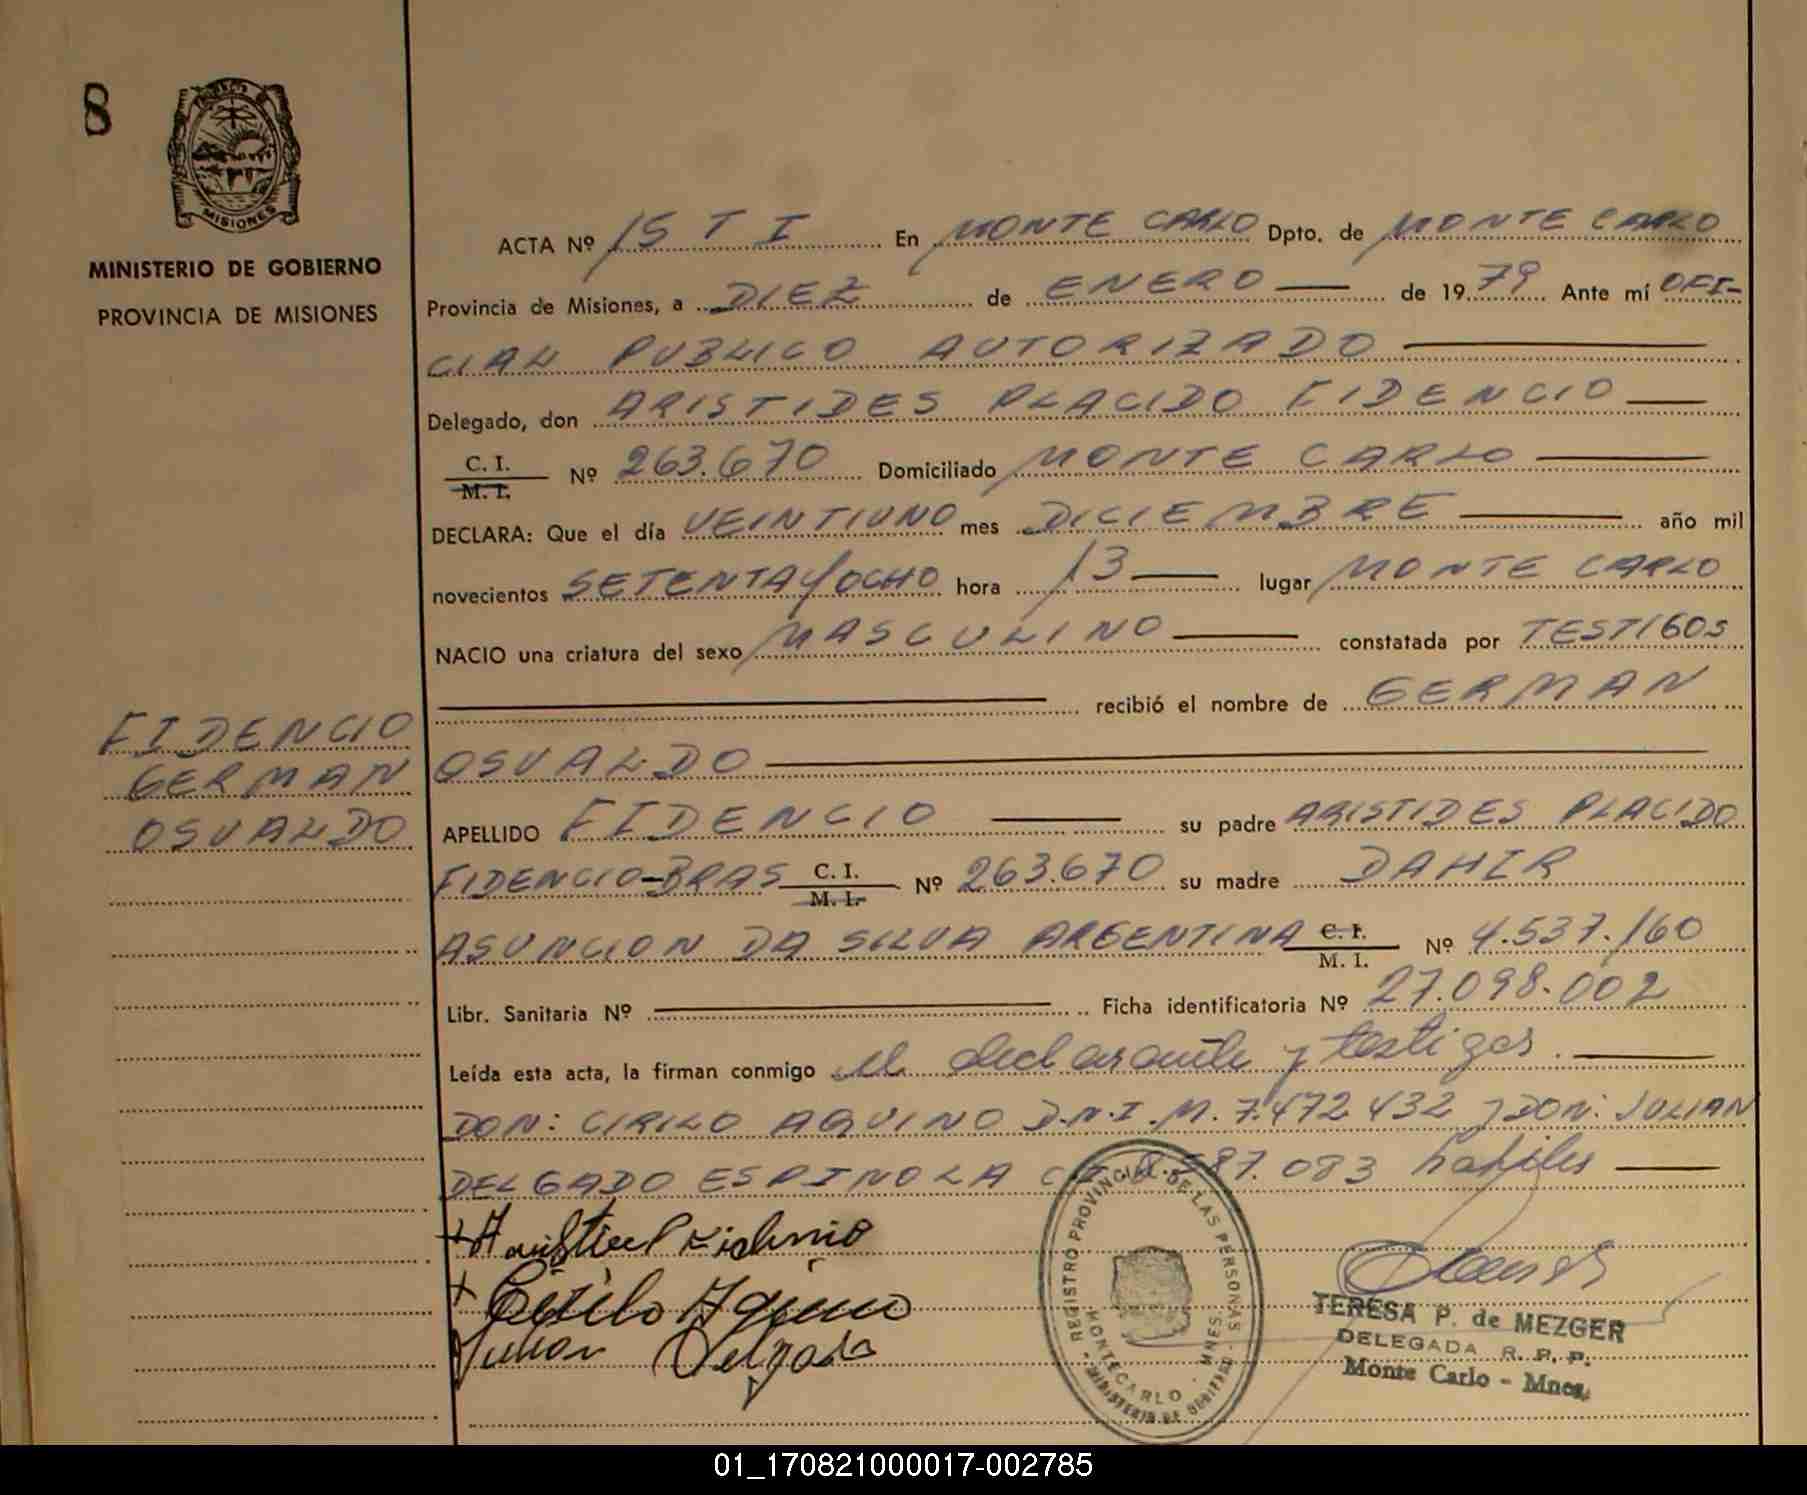 8
MISIONES
MINISTERIO DE GOBIERNO
PROVINCIA DE MISIONES
ACTA Nº 15 T I En MONTE CARLO Dpto. de MONTE CARLO
Provincia de Misiones, a DIEZ de ENERO de 1979 Ante mí OFI-
CIAL PUBLICO AUTORIZADO
Delegado, don ARISTIDES PLACIDO FIDENCIO
C. I.
M. I. Nº 263.670 Domiciliado MONTE CARLO
DECLARA: Que el día VEINTIUNO mes DICIEMBRE año mil
novecientos SETENTA Y OCHO hora 13 lugar MONTE CARLO
NACIO una criatura del sexo MASCULINO constatada por TESTIGOS
recibió el nombre de GERMAN
OSVALDO
FIDENCIO
GERMAN
OSVALDO
APELLIDO FIDENCIO su padre ARISTIDES PLACIDO
FIDENCIO-BRAS C. I.
M. I. Nº 263.670 su madre DAHIR
ASUNCION DA SILVA ARGENTINA C. I.
M. I. Nº 4.537.160
Libr. Sanitaria Nº Ficha identificatoria Nº 27.098.002
Leída esta acta, la firman conmigo el declarante y testigos.
DON: CIRILO AQUINO D.N.I.M. 7.472 432 y DON: JULIAN
DELGADO ESPINOLA C.I. 587.083 habiles
Cirilo Aquino
Julian Delgado
REGISTRO PROVINCIAL DE LAS PERSONAS
MONTECARLO - MNES.
MINISTERIO DE GOBIERNO
TERESA P. de MEZGER
DELEGADA R. P. P.
Monte Carlo - Mnes.
01_170821000017-002785